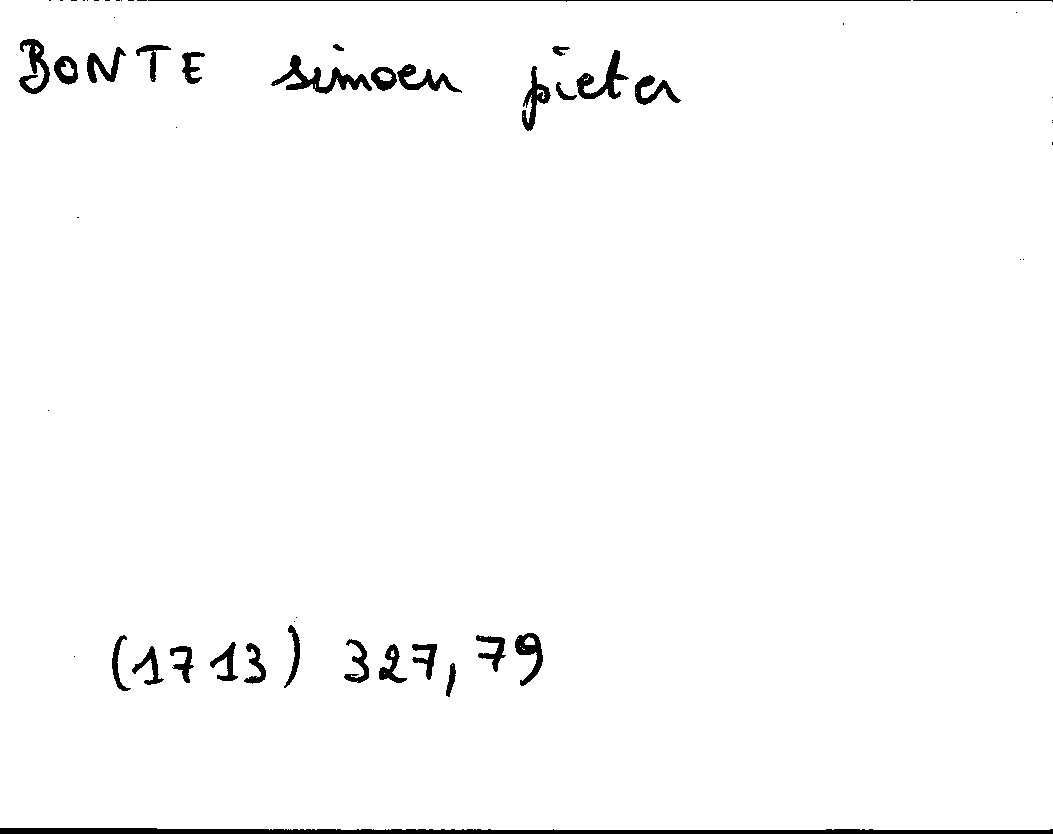 BONTE simoen pieter
(1713) 327, 79